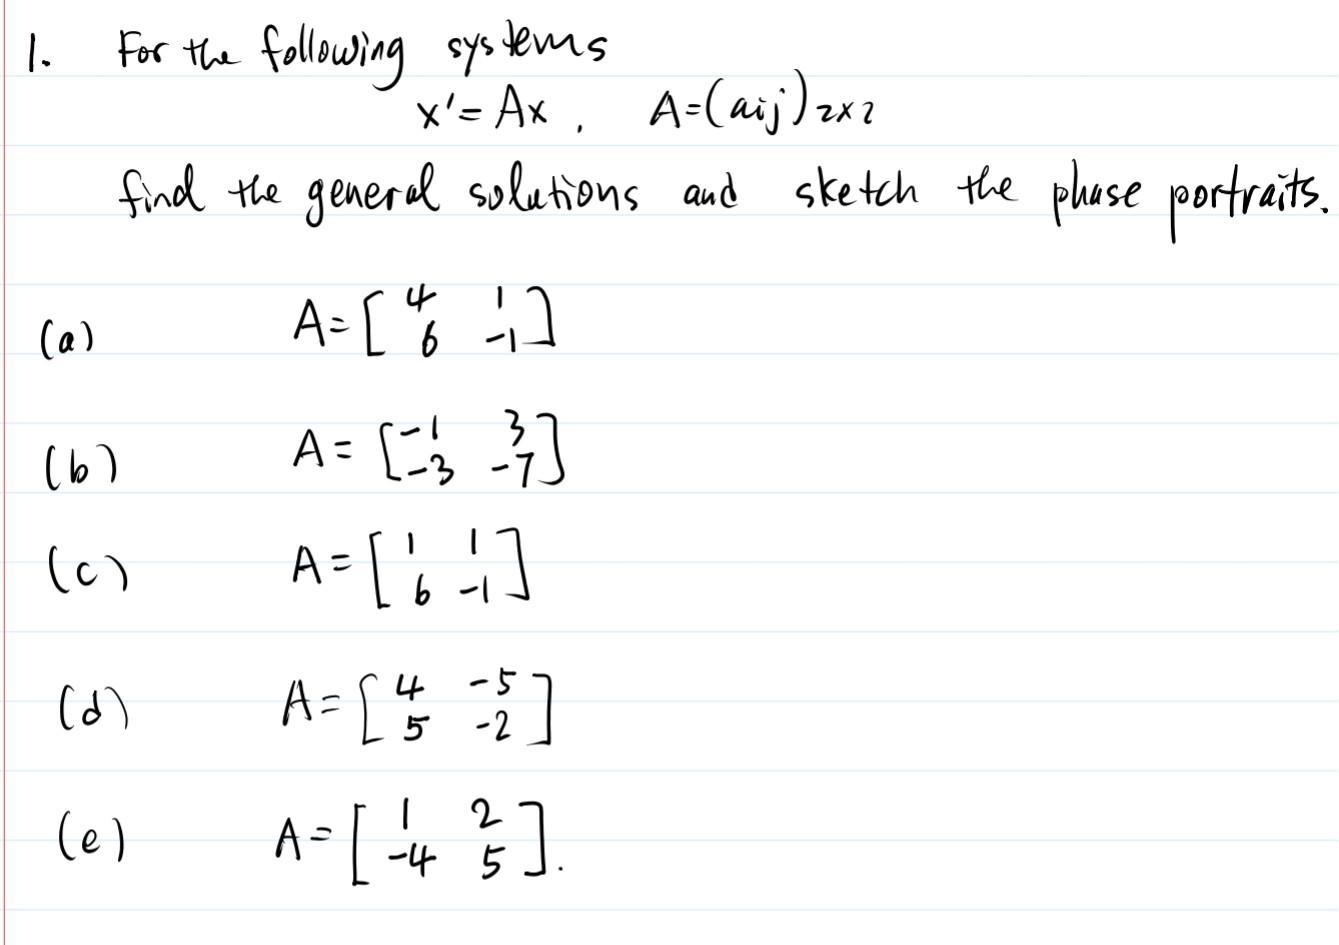 1. For the following systems
x' = Ax , A=(aij)2x2
find the general solutions and sketch the phase portraits.
(a) A= [ 4 1
6 -1 ]
(b) A= [ -1 3
-3 -7 ]
(c) A= [ 1 1
6 -1 ]
(d) A= [ 4 -5
5 -2 ]
(e) A= [ 1 2
-4 5 ].